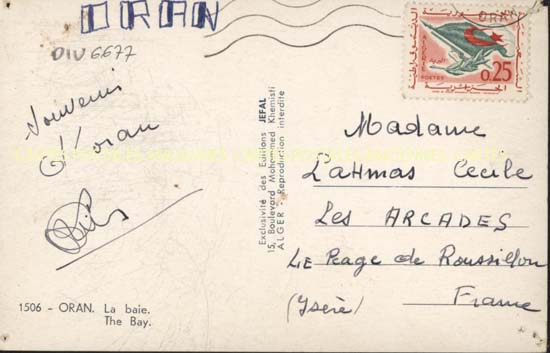 ORAN
DIV 6677
Souvenir
d'oran
1506 - ORAN. La baie.
The Bay.
Exclusivité des Editions JEFAL
15, Boulevard Mohammed Khemisti
ALGER - Reproduction interdite
ORAN
POSTES
0.25
Madame
Lahmas Cecile
Les ARCADES
Le Peage de Roussillon
(Isère)
France